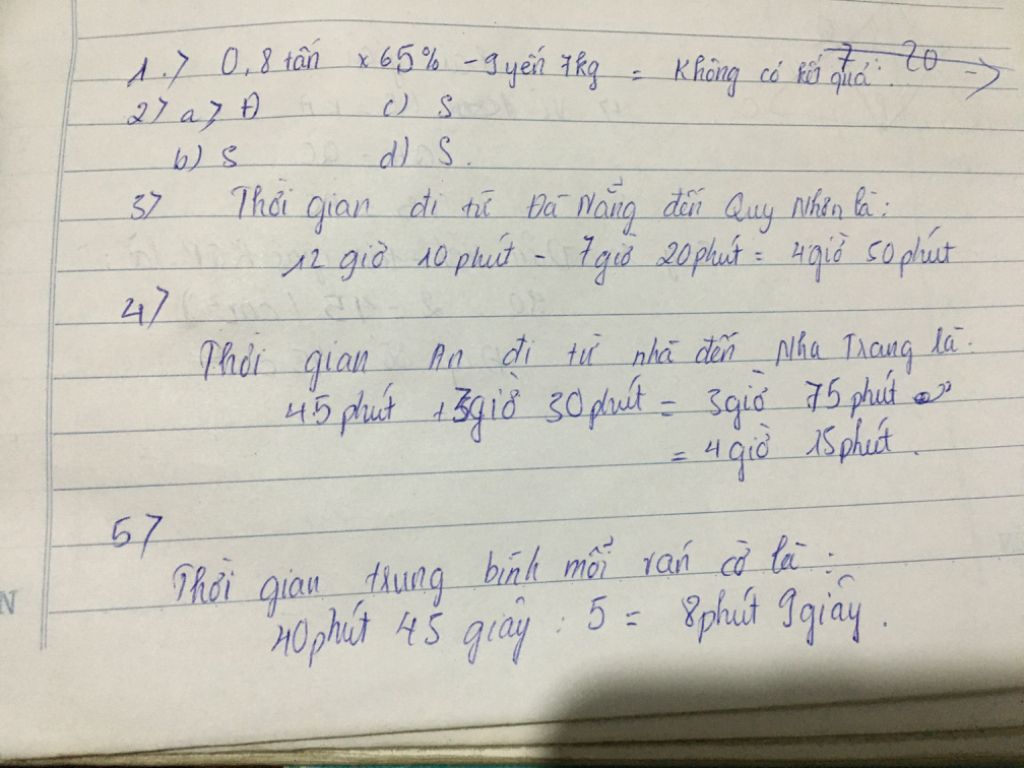 1.> 0,8 tấn x 65% - 9 yến 7kg = Không có kết quả. ->
2> a> Đ c) S
b) S d) S.
3> Thời gian đi từ Đà Nẵng đến Quy Nhơn là:
12 giờ 10 phút - 7 giờ 20 phút = 4 giờ 50 phút
4>
Thời gian An đi từ nhà đến Nha Trang là:
45 phút + 3 giờ 30 phút = 3 giờ 75 phút
= 4 giờ 15 phút.
5>
Thời gian trung bình mỗi ván cờ là:
40 phút 45 giây : 5 = 8 phút 9 giây.
N